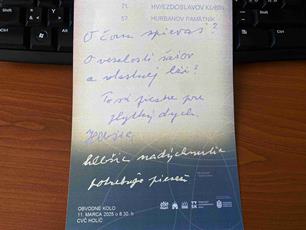 71. HVIEZDOSLAVOV KUBÍN
57. HURBANOV PAMÄTNÍK
O čom spievaš?
O veselosti
a vlastnej
To sú piesne pre
plytký dych.
Hlbšie
hlbšie nadýchnutie
potrebuje pieseň
OBVODNÉ KOLO
11. MARCA 2025 o 8.30 h
CVČ HOLÍČ